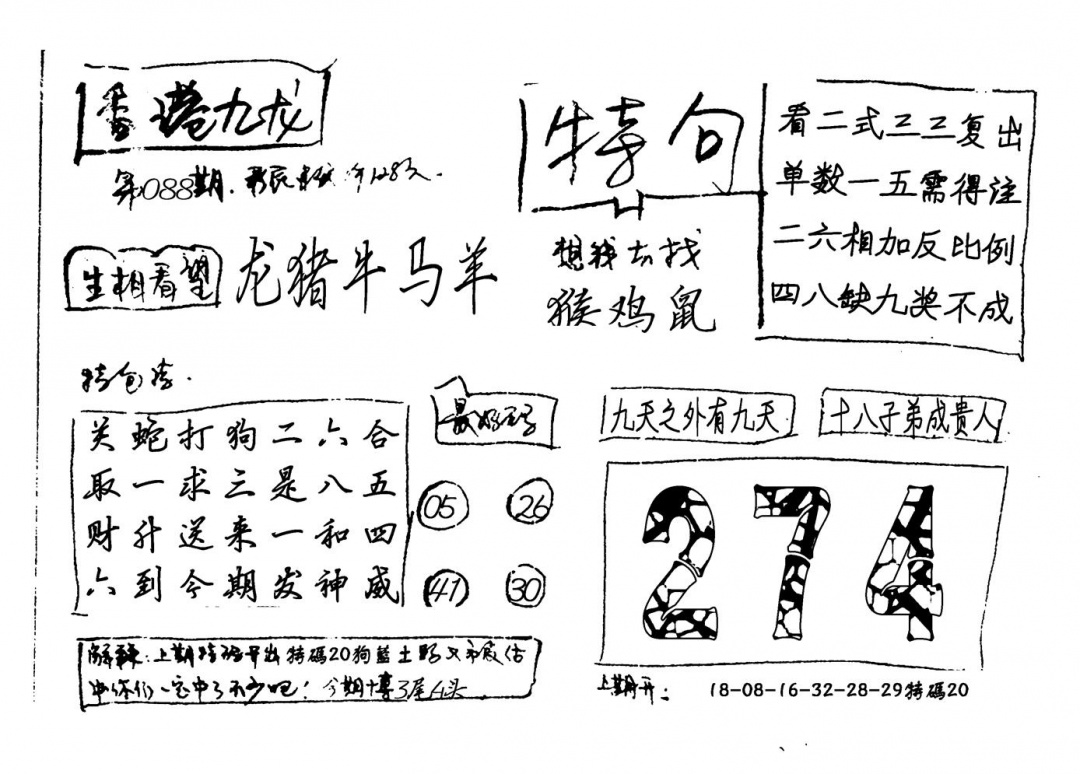 香港九龙
第088期.
生相看望
龙猪牛马羊
特句
想我去找
猴鸡鼠
看二式三三复出
单数一五需得注
二六相加反比例
四八缺九奖不成
特包诗.
关蛇打狗二六合
取一求三是八五
财升送来一和四
六到今期发神威
05
26
41
30
九天之外有九天
十八子弟成贵人
274
解释:上期特码开出特碼20狗蓝土
中你们一定中了不少吧!今期博3尾4头
上期开: 18-08-16-32-28-29特碼20